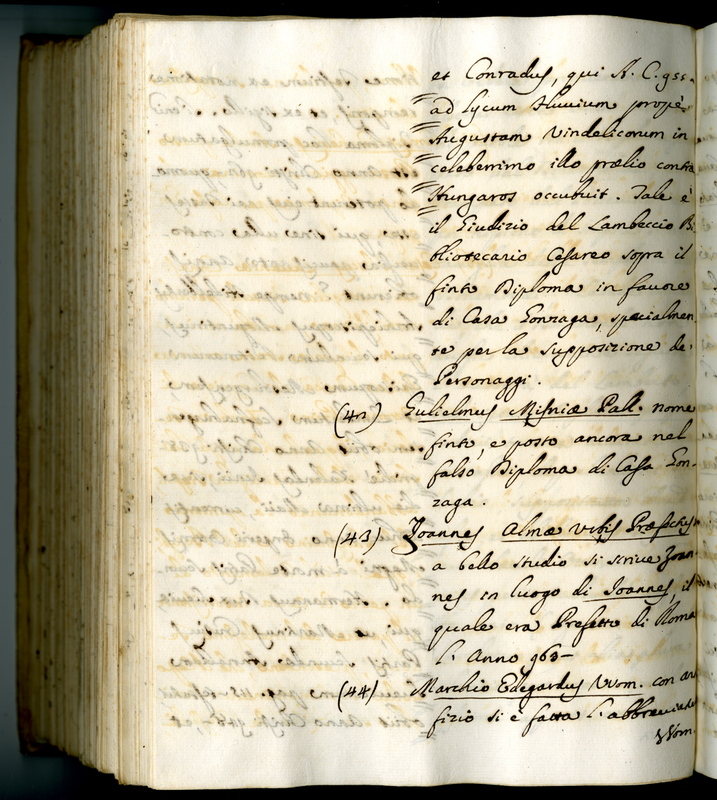 et Conradus, qui A. C. 955.
ad Lycum Fluvium propè
Augustam Vindelicorum in
celeberrimo illo prælio contra
Hungaros occubuit. Tale è
il Giudizio del Lambeccio Bi
bliotecario Cesareo sopra il
finto Diploma in favore
di Casa Gonzaga, specialmen
te per la supposizione de'
Personaggi.
(42) Gulielmus Misniæ Pall. nome
finto, e posto ancora nel
falso Diploma di Casa Gon-
zaga.
(43) Joannes Almæ Urbis Præfectus
a bello studio si scrive Joan
nes in luogo di Joannes, il
quale era Prefetto di Roma
l'Anno 963-
(44) Marchio Edegardus VVom. con ar
fizio si è fatta l'abbreviat
VVom.